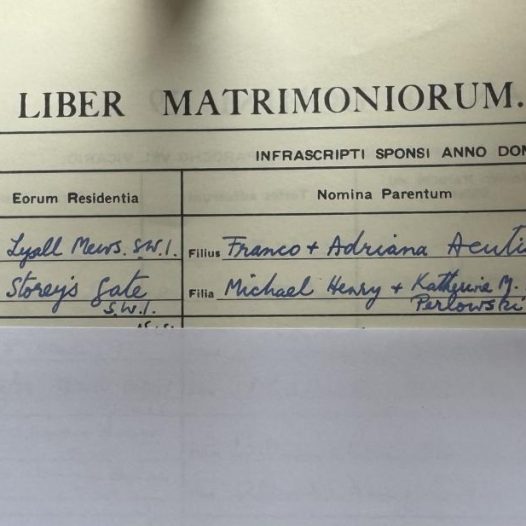 LIBER MATRIMONIORUM.
INFRASCRIPTI SPONSI ANNO DOM
Eorum Residentia Nomina Parentum
Lyall Mews. S.W.1. Filius Franco + Adriana Acutis
Storey's Gate S.W.1. Filia Michael Henry + Katherine M. Perlowski